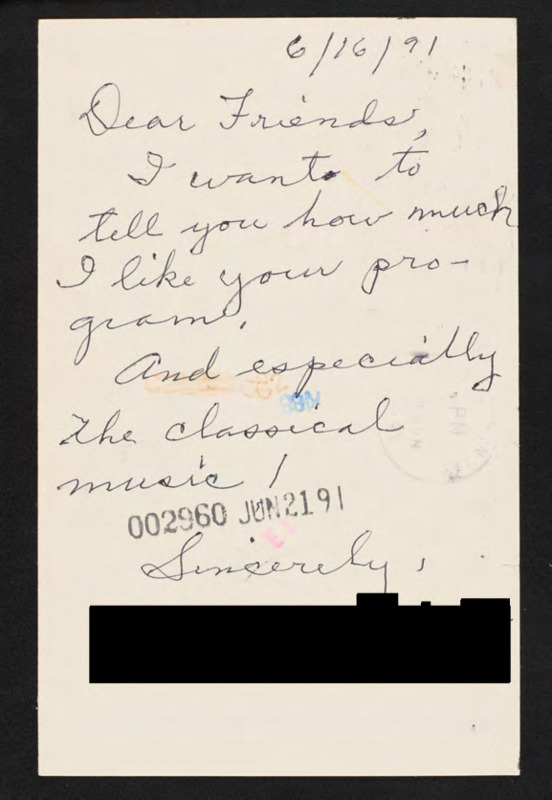 6/16/91
Dear Friends,
I want to
tell you how much
I like your pro-
gram.
And especially
the classical
music!
002960 JUN21 91
Sincerely,